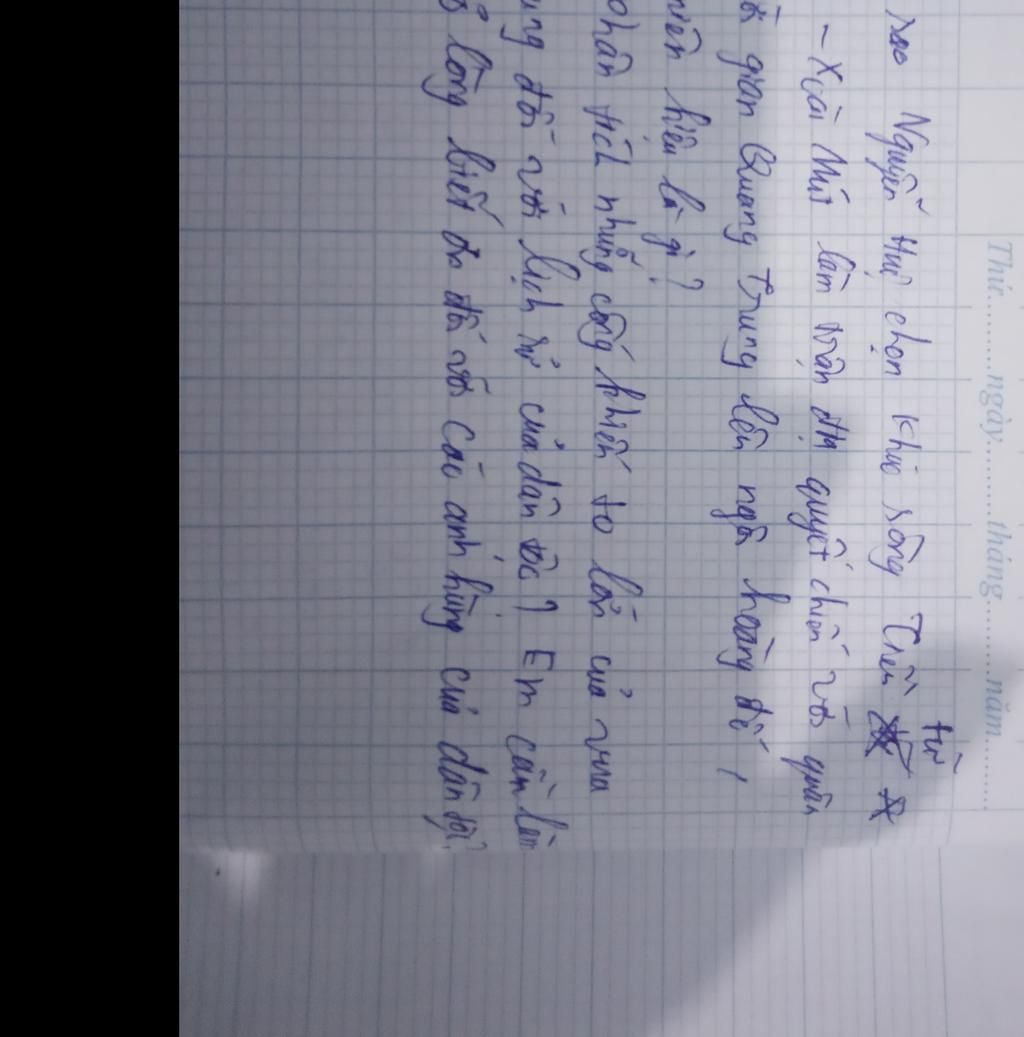 Thứ..........ngày..........tháng..........năm..........
từ
sao Nguyễn Huệ chọn khúc sông Tiền
- Xoài Mút làm trận địa quyết chiến với quân
gian Quang Trung lên ngôi hoàng đế,
niên hiệu là gì?
phân tích những cống hiến to lớn của vua
ung đối với lịch sử của dân tộc? Em cần làm
lòng biết ơn đối với các anh hùng của dân tộc?